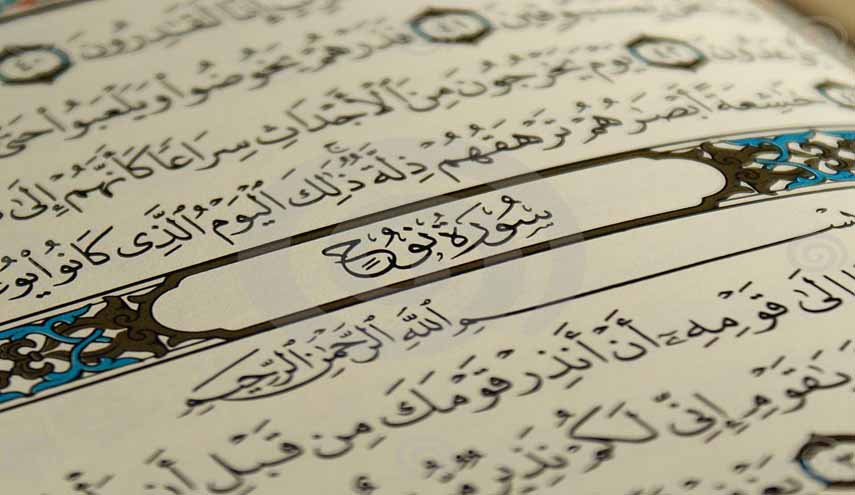 إِنَّا لَقَـٰدِرُونَ ٤٠
بِمَسْبُوقِينَ ٤١ فَذَرْهُمْ يَخُوضُوا۟ وَيَلْعَبُوا۟ حَتَّىٰ
يُوعَدُونَ ٤٢ يَوْمَ يَخْرُجُونَ مِنَ ٱلْأَجْدَاثِ سِرَاعًا كَأَنَّهُمْ إِلَىٰ
خَـٰشِعَةً أَبْصَـٰرُهُمْ تَرْهَقُهُمْ ذِلَّةٌ ذَٰلِكَ ٱلْيَوْمُ ٱلَّذِى كَانُوا۟
سُورَةُ نُوحٍ
بِسْمِ ٱللَّهِ ٱلرَّحْمَـٰنِ ٱلرَّحِيمِ
إِلَىٰ قَوْمِهِۦٓ أَنْ أَنذِرْ قَوْمَكَ مِن قَبْلِ أَن
يَـٰقَوْمِ إِنِّى لَكُمْ نَذِيرٌ